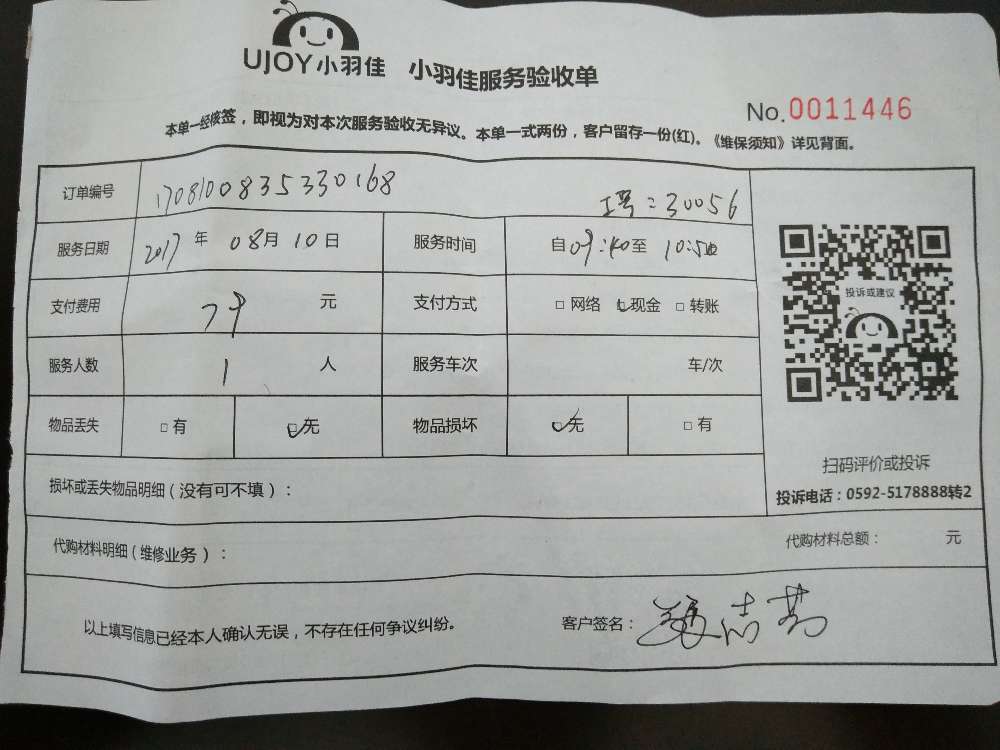 UJOY小羽佳 小羽佳服务验收单
No.0011446
本单一经核签，即视为对本次服务验收无异议。本单一式两份，客户留存一份(红)。《维保须知》详见背面。
订单编号 1708100835330168 工号：30056
服务日期 2017年08月10日 服务时间 自09:40至10:50
支付费用 79 元 支付方式 □网络 □现金 □转账
服务人数 1 人 服务车次 车/次
物品丢失 □有 □无 物品损坏 □无 □有
投诉或建议
扫码评价或投诉
投诉电话：0592-5178888转2
损坏或丢失物品明细（没有可不填）：
代购材料明细（维修业务）： 代购材料总额： 元
以上填写信息已经本人确认无误，不存在任何争议纠纷。 客户签名：